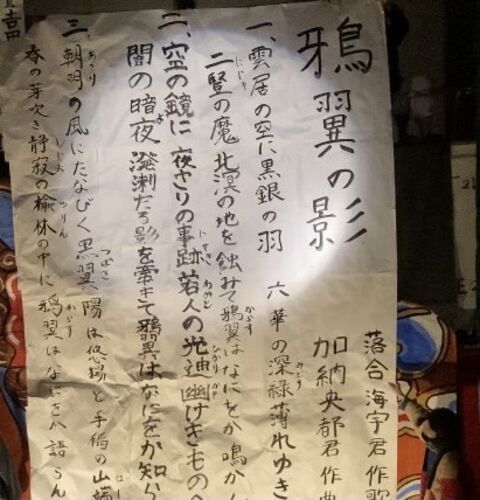 鴉翼の影
落合海宇君作歌
加納央都君作曲
一、雲居の空に黒銀の羽 六華の深緑薄れゆき
二竪の魔 北溟の地を蝕みて鴉翼はなにをか鳴かん
二、空の鏡に夜ざりの事跡 若人の光迪幽けきもの
闇の暗夜 溌溂たる影を牽きて鴉翼はなにをか知ら
三、朝明の風にたなびく黒翌 陽は悠揚と手稲の山端
春の芽吹き静寂の楡林の中に鴉翌はなにをか語らん